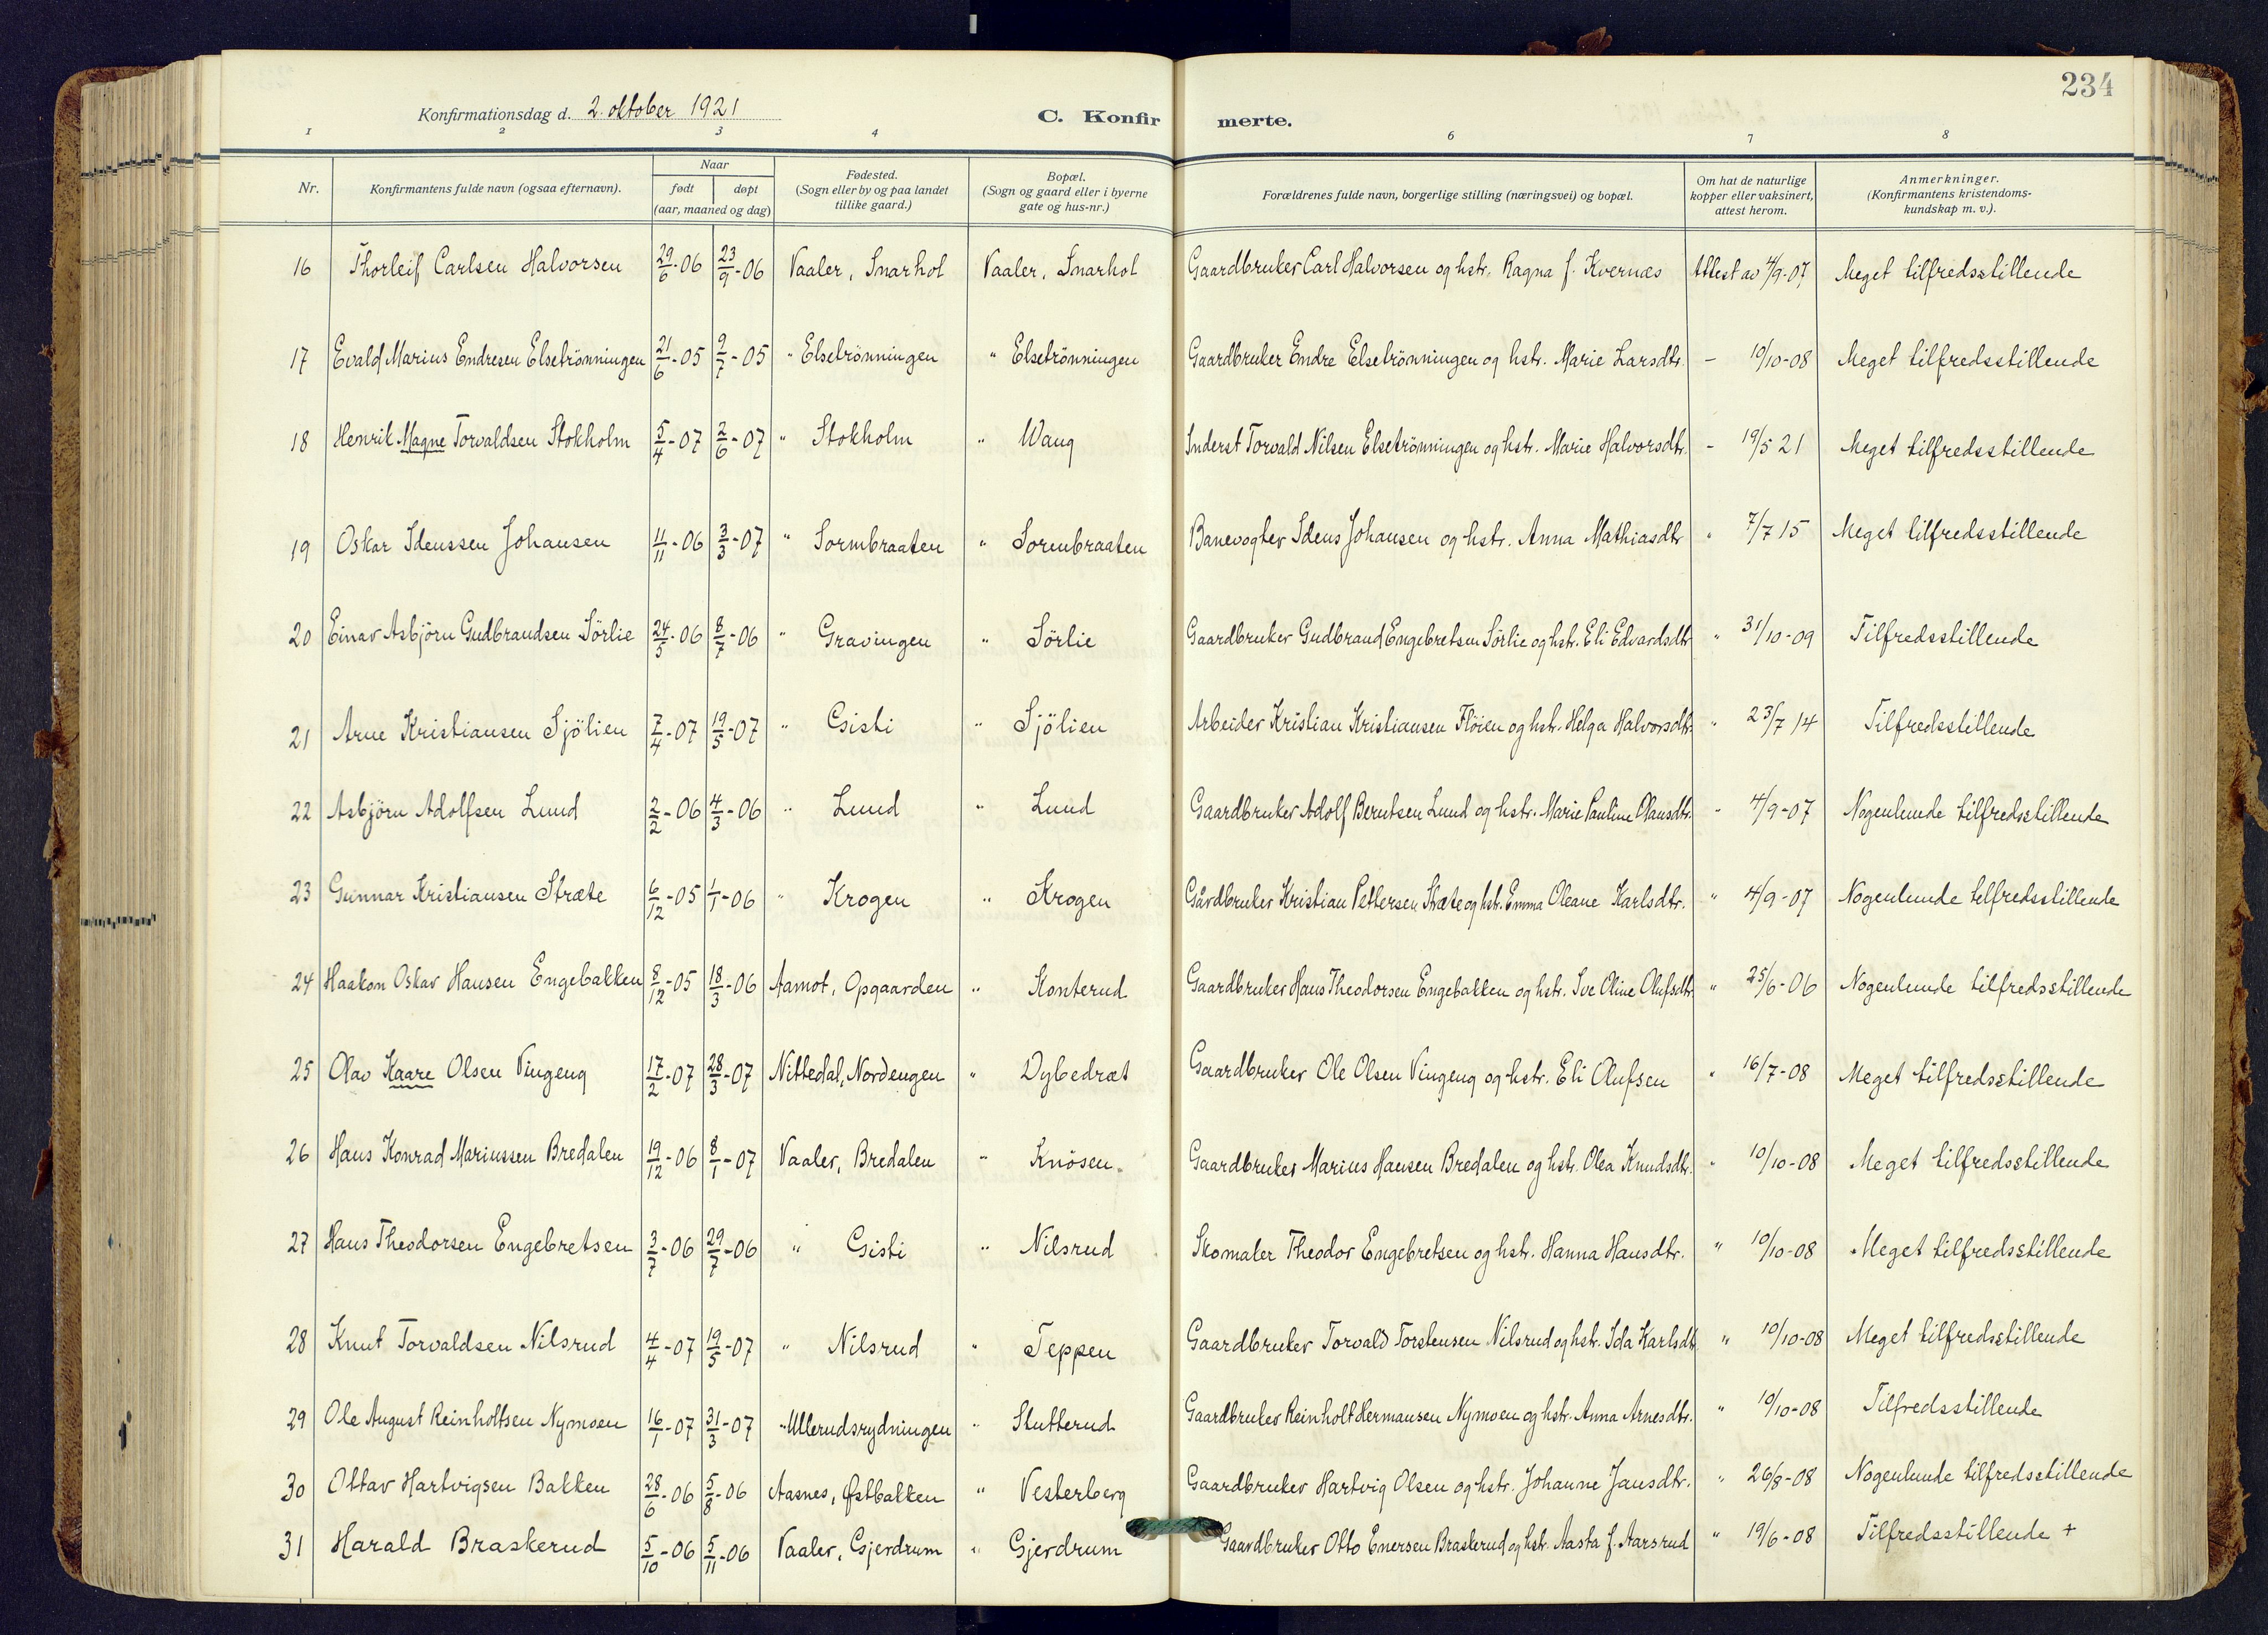 234
Konfirmationsdag d. 2. oktober 1921
C. Konfirmerte.
1 2 3 4 6 7 8
Nr.
Konfirmantens fulde navn (ogsaa efternavn).
Naar
født døpt
(aar, maaned og dag)
Fødested.
(Sogn eller by og paa landet
tillike gaard.)
Bopæl.
(Sogn og gaard eller i byerne
gate og hus-nr.)
Forældrenes fulde navn, borgerlige stilling (næringsvei) og bopæl.
Om hat de naturlige
kopper eller vaksinert,
attest herom.
Anmerkninger.
(Konfirmantens kristendoms-
kundskap m. v.).
16 Thorleif Carlsen Halvorsen 29/6-06 23/9-06 Vaaler, Snarhol Vaaler, Snarhol Gaardbruker Carl Halvorsen og hstr. Ragna f. Kvernæs Attest av 4/9-07 Meget tilfredsstillende
17 Evald Marius Endresen Elsetrönningen 21/6-05 9/7-05 " Elsetrönningen " Elsetrönningen Gaardbruker Endre Elsetrönningen og hstr. Marie Larsdtr. - 10/10-08 Meget tilfredsstillende
18 Henrik Magne Torvaldsen Stokholm 5/4-07 2/6-07 " Stokholm " Wang Inderst Torvald Nilsen Elsetrönningen og hstr. Marie Halvorsdtr. - 19/5 21 Meget tilfredsstillende
19 Oskar Idenssen Johansen 11/11-06 3/3-07 " Sormbraaten " Sormbraaten Banevogter Idens Johansen og hstr. Anna Mathiasdtr " 7/7 15 Meget tilfredsstillende
20 Einar Asbjörn Gudbrandsen Sörlie 24/5-06 8/7-06 " Gravingen " Sörlie Gaardbruker Gudbrand Engebretsen Sörlie og hstr. Eli Edvardsdtr " 31/10-09 Tilfredsstillende
21 Arne Kristiansen Sjölien 7/4-07 19/5-07 " Gisti " Sjölien Arbeider Kristian Kristiansen Flöien og hstr. Helga Halvorsdtr. " 23/7 14 Tilfredsstillende
22 Asbjörn Adolfsen Lund 2/2-06 4/3-06 " Lund " Lund Gaardbruker Adolf Berntsen Lund og hstr. Marie Pauline Olausdtr. " 4/9-07 Nogenlunde tilfredsstillende
23 Gunnar Kristiansen Stræte 6/12-05 1/1-06 " Krogen " Krogen Gårdbruker Kristian Pettersen Stræte og hstr. Emma Oleane Karlsdtr. " 4/9-07 Nogenlunde tilfredsstillende
24 Haakon Oskar Hansen Engebakken 8/12-05 18/3-06 Aamot, Opgaarden " Konterud Gaardbruker Hans Theodorsen Engebakken og hstr. Ive Oline Olufsdtr " 25/6-06 Nogenlunde tilfredsstillende
25 Olav Kaare Olsen Vingeng 17/2-07 28/3-07 Nittedal, Nordengen " Dybedræt Gaardbruker Ole Olsen Vingeng og hstr. Eli Olufsen " 16/7-08 Meget tilfredsstillende
26 Hans Konrad Mariussen Bredalen 19/12-06 8/1-07 Vaaler, Bredalen " Knösen Gaardbruker Marius Hansen Bredalen og hstr. Olea Knudsdtr. " 10/10-08 Meget tilfredsstillende
27 Hans Theodorsen Engebretsen 3/7-06 29/7-06 " Gisti " Nilsrud Skomaker Theodor Engebretsen og hstr. Hanna Hansdtr. " 10/10-08 Meget tilfredsstillende
28 Knut Torvaldsen Nilsrud 4/4-07 19/5-07 " Nilsrud " Teppen Gaardbruker Torvald Torstensen Nilsrud og hstr. Ida Karlsdtr " 10/10-08 Meget tilfredsstillende
29 Ole August Reinholtsen Nymoen 16/1-07 31/3-07 " Ullerudsrydningen " Slutterud Gaardbruker Reinholt Hermansen Nymoen og hstr. Anna Arnesdtr. " 10/10-08 Tilfredsstillende
30 Ottar Hartvigsen Bakken 28/6-06 5/8-06 Aasnes, Østbakken " Vesterberg Gaardbruker Hartvig Olsen og hstr. Johanne Jansdtr. " 26/8-08 Nogenlunde tilfredsstillende
31 Harald Braskerud 5/10-06 5/11-06 Vaaler, Gjerdrum " Gjerdrum Gaardbruker Otto Enersen Braskerud og hstr. Aasta f. Aarsrud " 19/6-08 Tilfredsstillende +